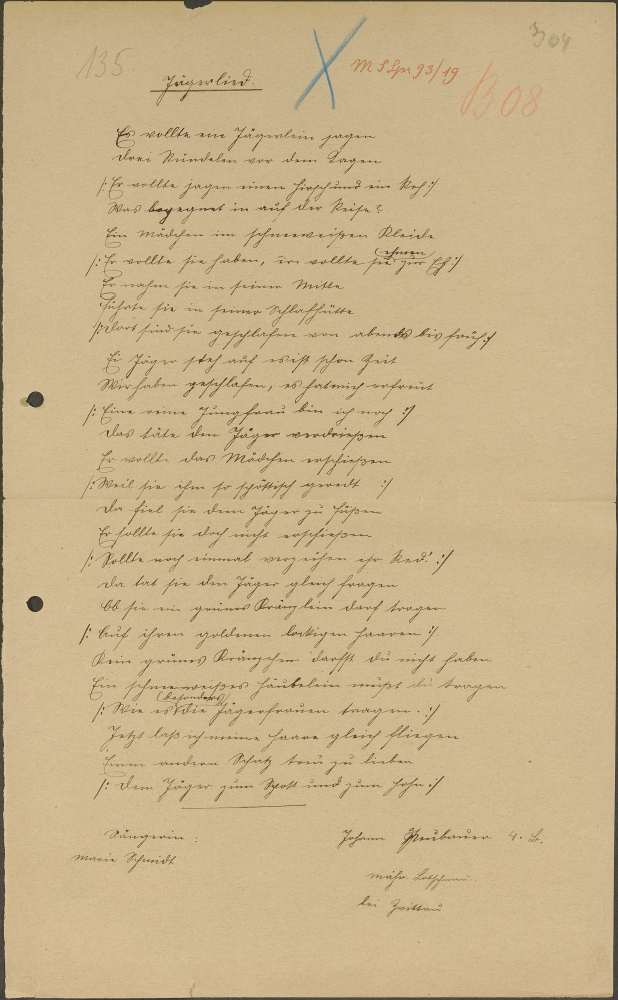 135
304
M S Spr 93/19
B08
Jägerlied.
Es wollte ein Jägerlein jagen
Drei Stündelen vor dem Tagen
/: Er wollte jagen einen Hirsch und ein Reh :/
Was begegnet in auf der Reise?
Ein Mädchen im schneeweißen Kleide
/: Er wollte sie haben, er wollte sie zur Eh :/
(ehmen)
Er nahm sie in seiner Mitte
Führte sie in seiner Schlafhütte
/: Dort sind sie geschlafen von abends bis früh :/
Ei Jäger steh auf es ist schon Zeit
Wir haben geschlafen, es hat mich erfreut
/: Eine reine Jungfrau bin ich noch :/
Das täte den Jäger verdrießen
Er wollte das Mädchen erschießen
/: Weil sie ihm so spöttisch geredt :/
Da fiel sie dem Jäger zu Füßen
Er sollte sie doch nicht erschießen
/: Sollte noch einmal verzeihen ihr Red! :/
Da tat sie den Jäger gleich fragen
Ob sie ein grünes Kränzlein darf tragen
/: Auf ihren goldenen lockigen Haaren :/
Kein grünes Kränzchen darfst du nicht haben
Ein schneeweißes Häubelein müßt du tragen
(besonders)
/: Wie es die Jägerfrauen tragen. :/
Jetzt laß ich meine Haare gleich fliegen
Einen andern Schatz treu zu lieben
/: Dem Jäger zum Spott und zum Hohn :/
Sängerin:
Marie Schmidt
Johann Neubauer 4. B.
mähr. Lotschnau
bei Zwittau